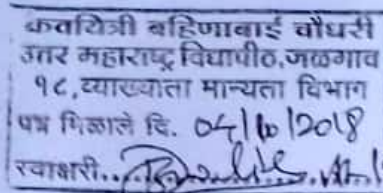 कवयित्री बहिणाबाई चौधरी
उत्तर महाराष्ट्र विद्यापीठ,जळगाव
१८,व्याख्याता मान्यता विभाग
पत्र मिळाले दि. 04/10/2018
स्वाक्षरी..